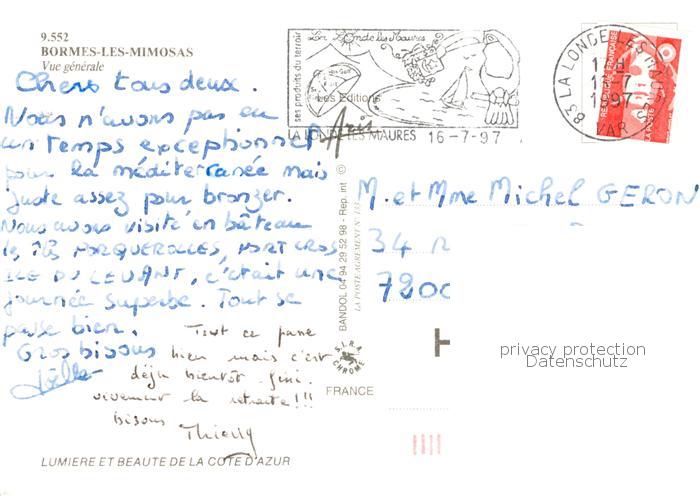 9.552
BORMES-LES-MIMOSAS
Vue générale
Chers tous deux.
Nous n'avons pas eu
un temps exceptionnel
pour la méditerranée mais
juste assez pour bronzer.
Nous avons visité en bâteau
les îles PORQUEROLLES, PORT CROS
ILE DU LEVANT, c'était une
journée superbe. Tout se
passe bien.
Gros bisous
Joëlle
Tout ce passe
bien mais c'est
déjà bientôt fini.
vivement la retraite!!!
bisous
Thierry
LUMIERE ET BEAUTE DE LA COTE D'AZUR
ses produits du terroir
La Londe les Maures
Les Editions
LA LONDE LES MAURES 16-7-97
83 LA LONDE LES MAURES
VAR
1997
REPUBLIQUE FRANÇAISE
LA POSTE
BANDOL 04 94 29 52 98 - Rep. int ©
LA POSTE AGREMENT N° 133
S.L.R.A. CHROME
FRANCE
M. et Mme Michel GERON
34 r
7200
H
privacy protection
Datenschutz